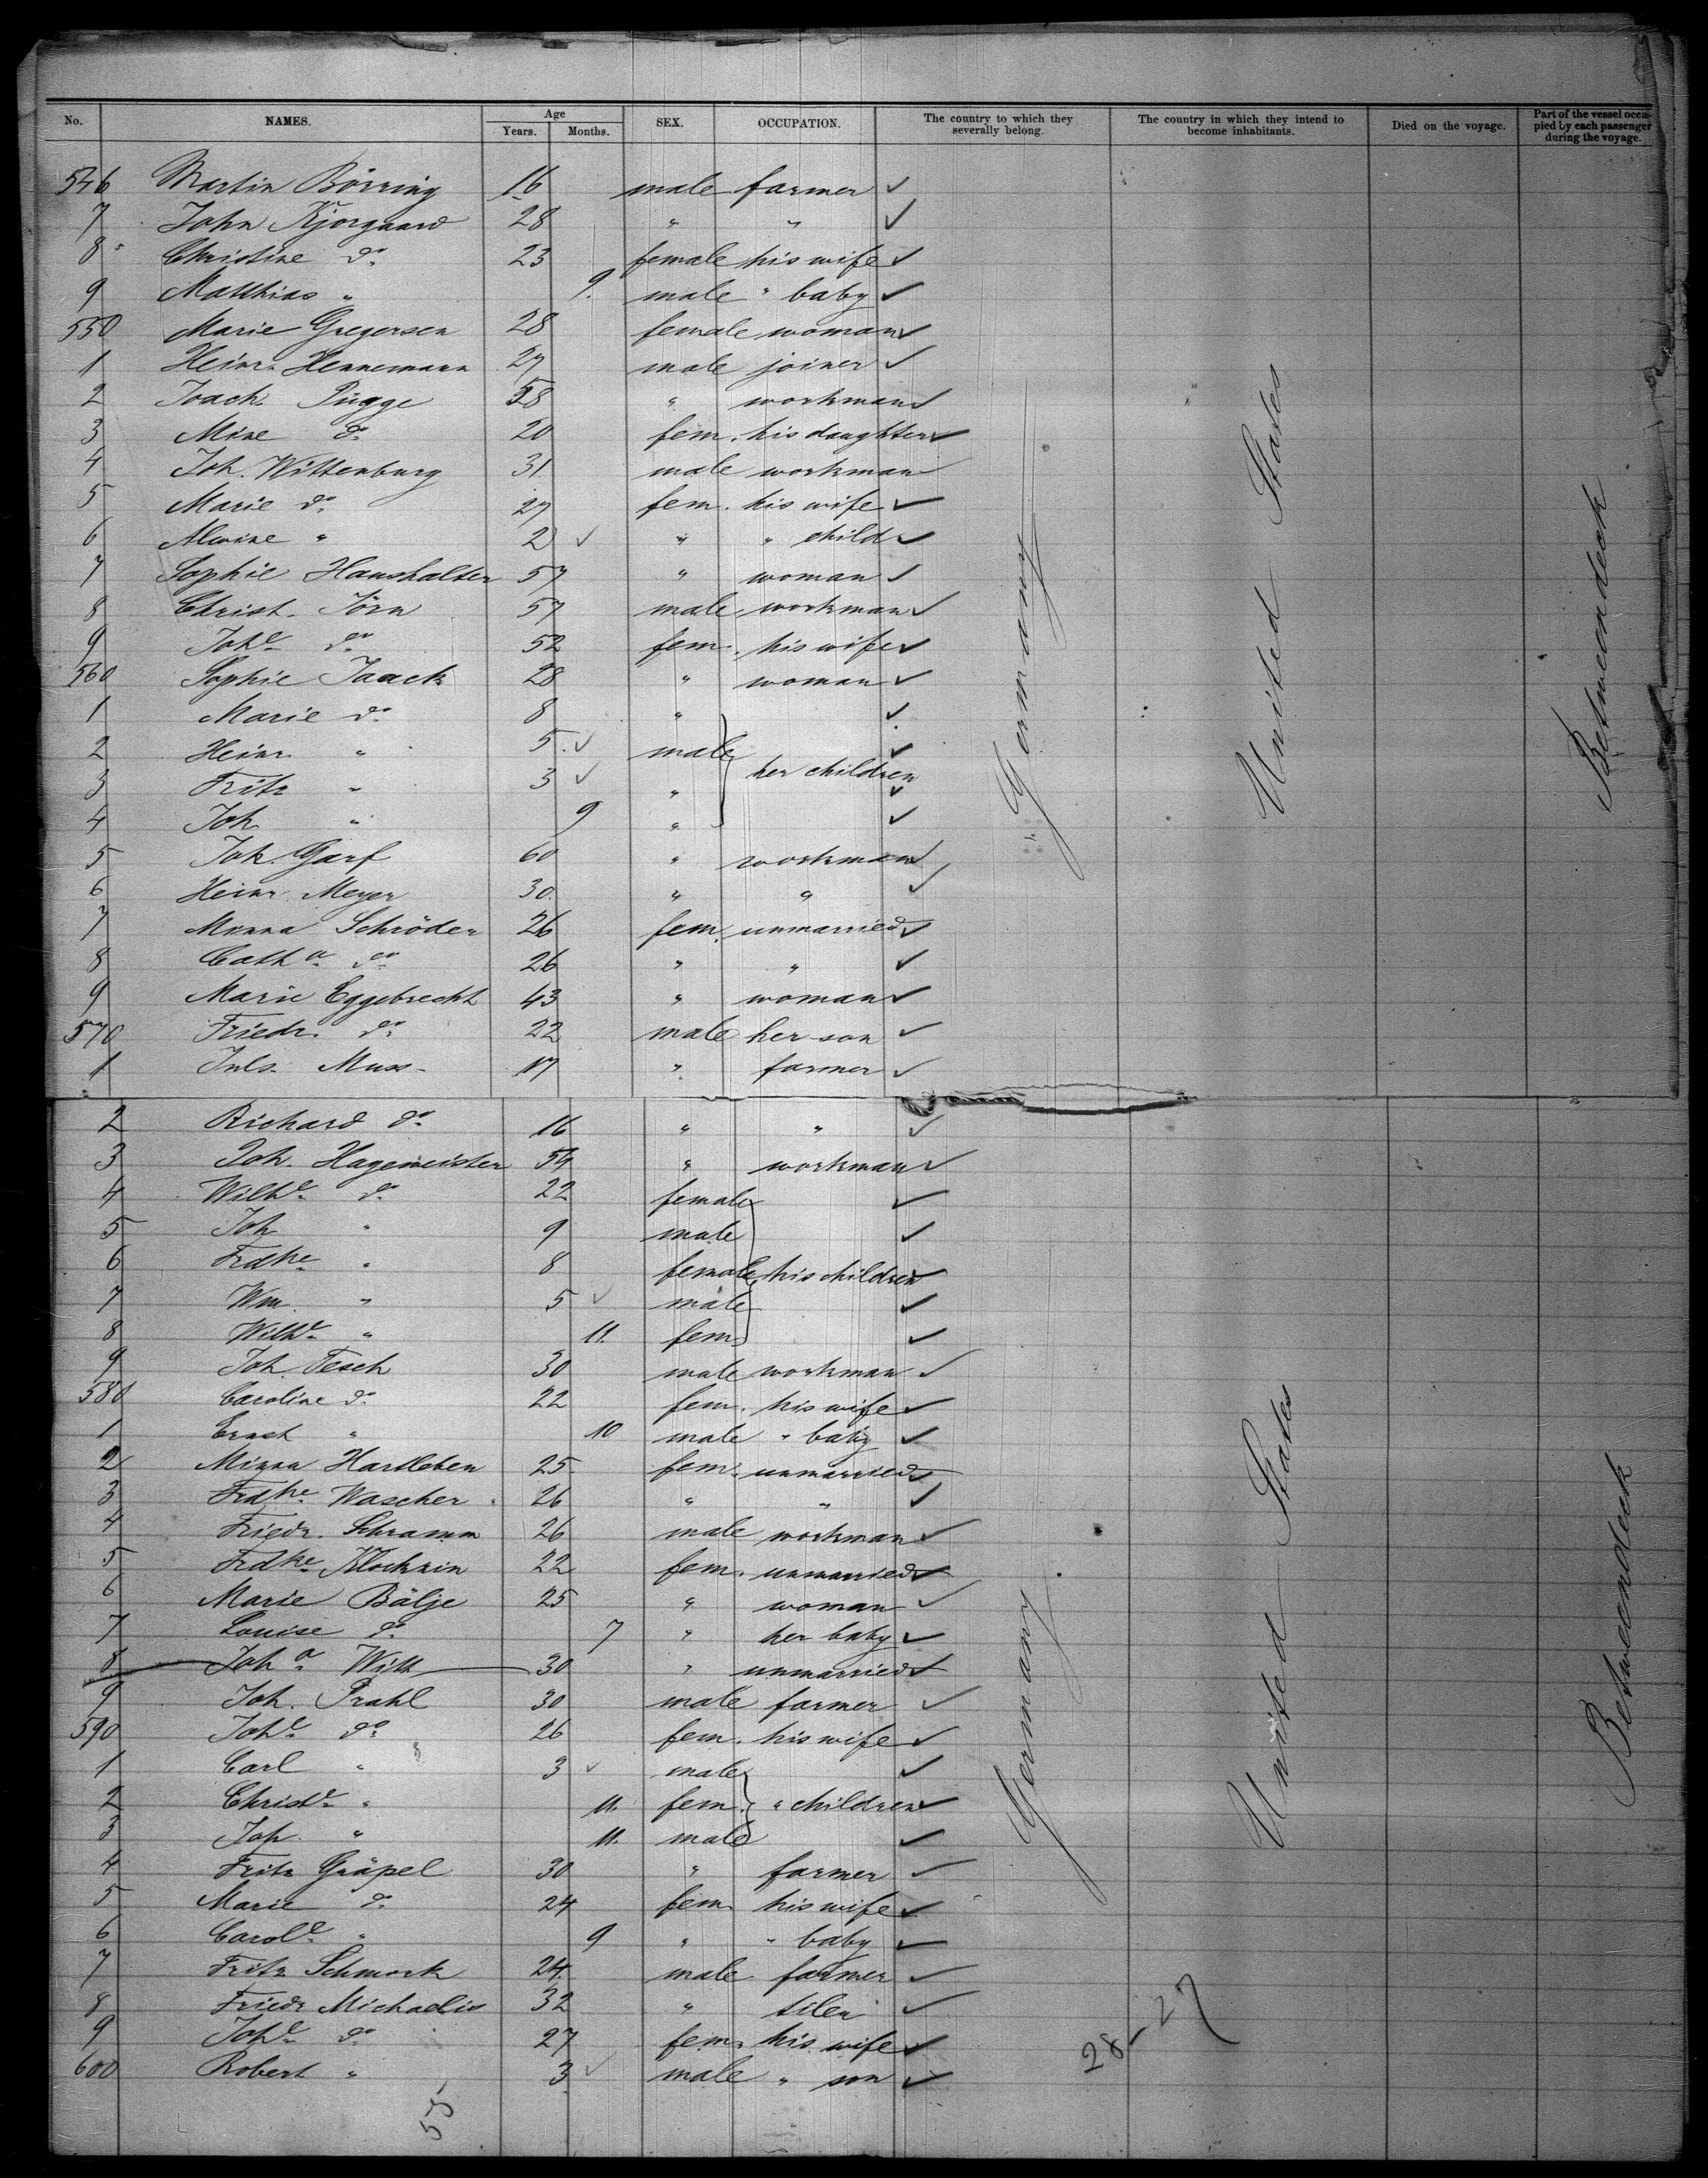 No. NAMES. Age Years. Months. SEX. OCCUPATION. The country to which they severally belong. The country in which they intend to become inhabitants. Died on the voyage. Part of the vessel occupied by each passenger during the voyage.
546 Martin Börring 16 male farmer ✓
7 John Kjorgaard 28 " " ✓
8 Christine do. 23 female his wife ✓
9 Matthias " 9. male " baby ✓
550 Marie Gregersen 28 female woman ✓
1 Heinr. Hennemann 27 male joiner ✓
2 Joach. Pügge 58 " workman ✓
3 Mine do. 20 fem. his daughter ✓
4 Joh. Wittenburg 31 male workman
5 Marie do. 27 fem. his wife ✓
6 Alwine " 2 ✓ " " child ✓
7 Sophie Haushalter 57 " woman ✓
8 Christ. Jörn 57 male workman ✓
9 Johe do. 52 fem. his wife ✓
560 Sophie Jaack 28 " woman ✓
1 Marie do. 8 " ✓
2 Heinr. " 5 ✓ male ✓
3 Fritz " 3 ✓ " her children ✓
4 Joh. " 9 " ✓
5 Joh. Garf 60 " workman ✓
6 Heinr. Meyer 30 " " ✓
7 Minna Schröder 26 fem. unmarried ✓
8 Catha do. 26 " " ✓
9 Marie Eggebrecht 43 " woman ✓
570 Friedr. do. 22 male her son ✓
1 Juls. Muss 17 " farmer ✓
Germany
United States
Betweendeck
2 Richard do. 16 " " ✓
3 Joh. Hagemeister 54 " workman ✓
4 Wilhe do. 22 female ✓
5 Joh. " 9 male ✓
6 Frdke " 8 female his children ✓
7 Wm. " 5 ✓ male ✓
8 Wilhe " 11. fem. ✓
9 Joh. Tesch 30 male workman ✓
580 Caroline do. 22 fem. his wife ✓
1 Ernst " 10 male " baby ✓
2 Minna Hartleben 25 fem. unmarried ✓
3 Frdke Wascher 26 " " ✓
4 Friedr. Schramm 26 male workman ✓
5 Frdke Klocknin 22 fem. unmarried ✓
6 Marie Bälje 25 " woman ✓
7 Louise do. 7 " her baby ✓
8 Joha Witt 30 " unmarried ✓
9 Joh. Prahl 30 male farmer ✓
590 Johe do. 26 fem. his wife ✓
1 Carl " 3 ✓ male ✓
2 Christe " 11. fem. " children ✓
3 Joh. " 11. male ✓
4 Fritz Gräpel 30 " farmer ✓
5 Marie do. 24 fem. his wife ✓
6 Carole " 9 " " baby ✓
7 Fritz Schmork 24. male farmer ✓
8 Friedr. Michaelis 32 " tiler ✓
9 Johe do. 27 fem. his wife ✓
600 Robert " 3 ✓ male " son ✓
Germany
United States
Betweendeck
28-27
55-